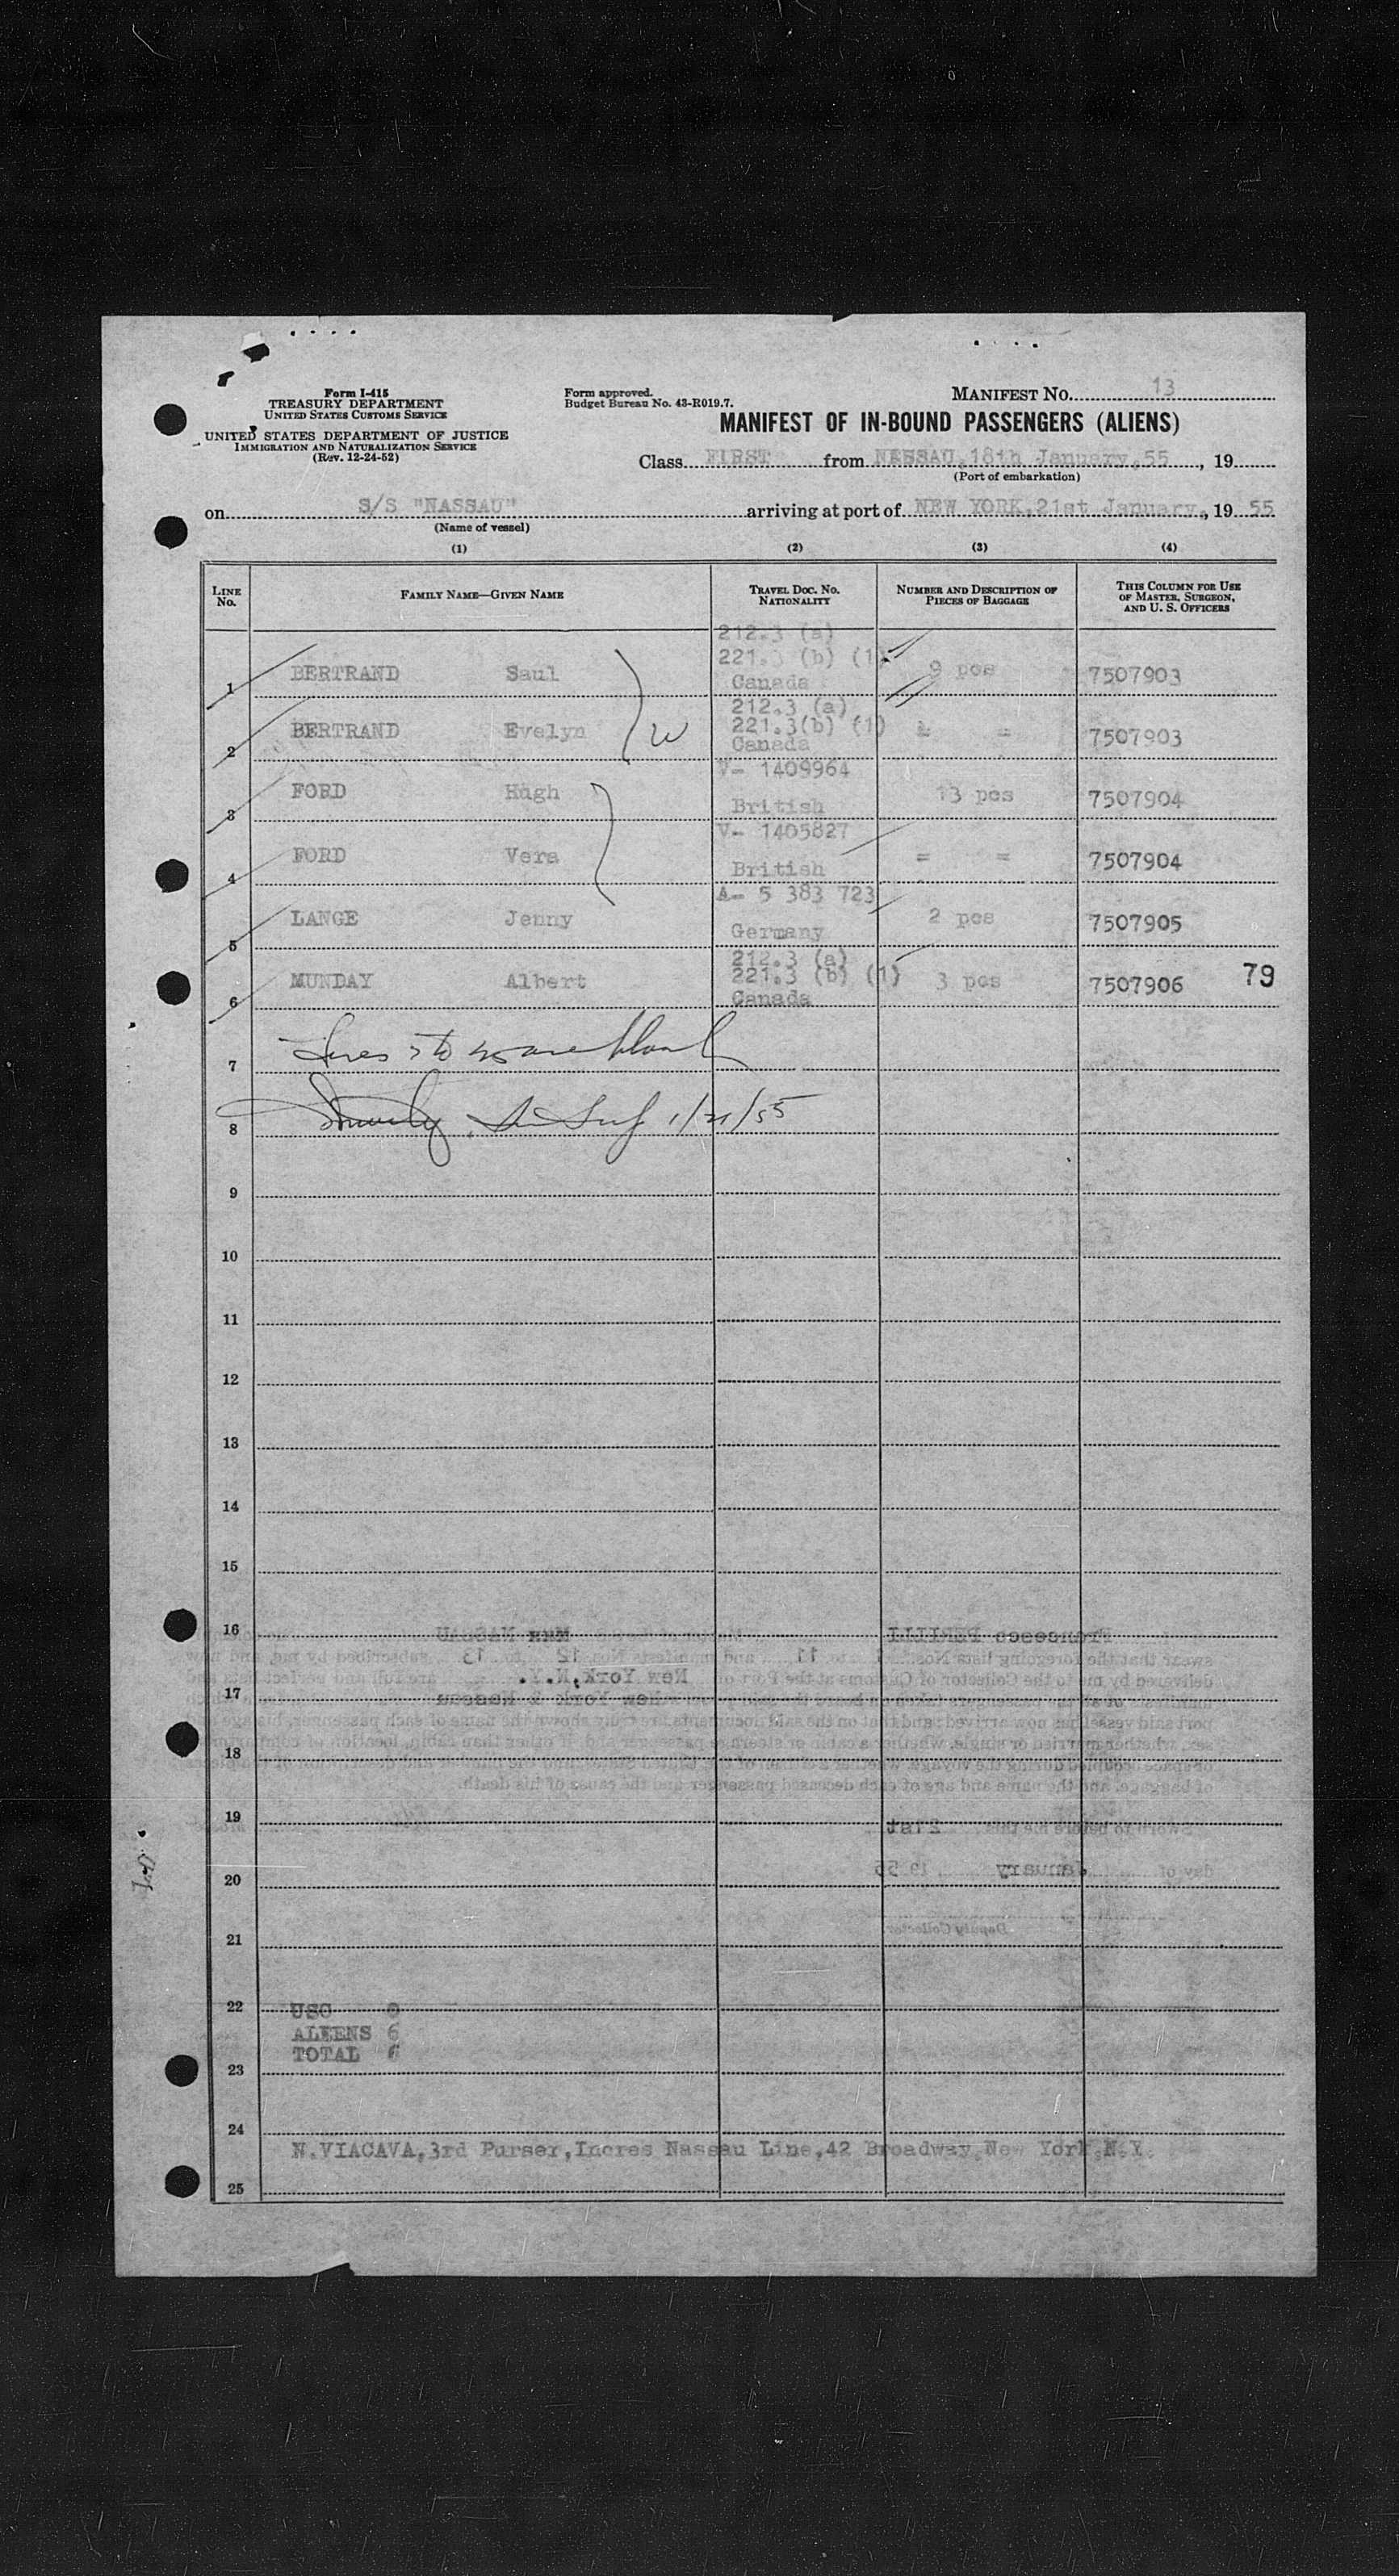 Form I-415
TREASURY DEPARTMENT
UNITED STATES CUSTOMS SERVICE
UNITED STATES DEPARTMENT OF JUSTICE
IMMIGRATION AND NATURALIZATION SERVICE
(Rev. 12-24-52)
Form approved.
Budget Bureau No. 43-R019.7.
MANIFEST NO. 13
MANIFEST OF IN-BOUND PASSENGERS (ALIENS)
Class FIRST from NASSAU,18th January,55, 19
(Port of embarkation)
on S/S "NASSAU" arriving at port of NEW YORK,21st January, 1955
(Name of vessel)
(1) (2) (3) (4)
LINE NO. FAMILY NAME—GIVEN NAME TRAVEL DOC. NO. NATIONALITY NUMBER AND DESCRIPTION OF PIECES OF BAGGAGE THIS COLUMN FOR USE OF MASTER, SURGEON, AND U. S. OFFICERS
212.3 (a)
221. (b) (1)
1 BERTRAND Saul Canada 9 pcs 7507903
212.3 (a)
221.3(b) (1)
2 BERTRAND Evelyn W Canada = = 7507903
V- 1409964
3 FORD Hugh British 13 pcs 7507904
V- 1405827
4 FORD Vera British = = 7507904
A- 5 383 723
5 LANGE Jenny Germany 2 pcs 7507905
212.3 (a)
221.3 (b) (1)
6 MUNDAY Albert Canada 3 pcs 7507906 79
7 Lines 7 to 25 are blank
8 1/21/55
9
10
11
12
13
14
15
16
17
18
19
20
21
22 USC 0
ALIENS 6
TOTAL 6
23
24
N.VIACAVA,3rd Purser,Incres Nassau Line,42 Broadway,New York,N.Y.
25